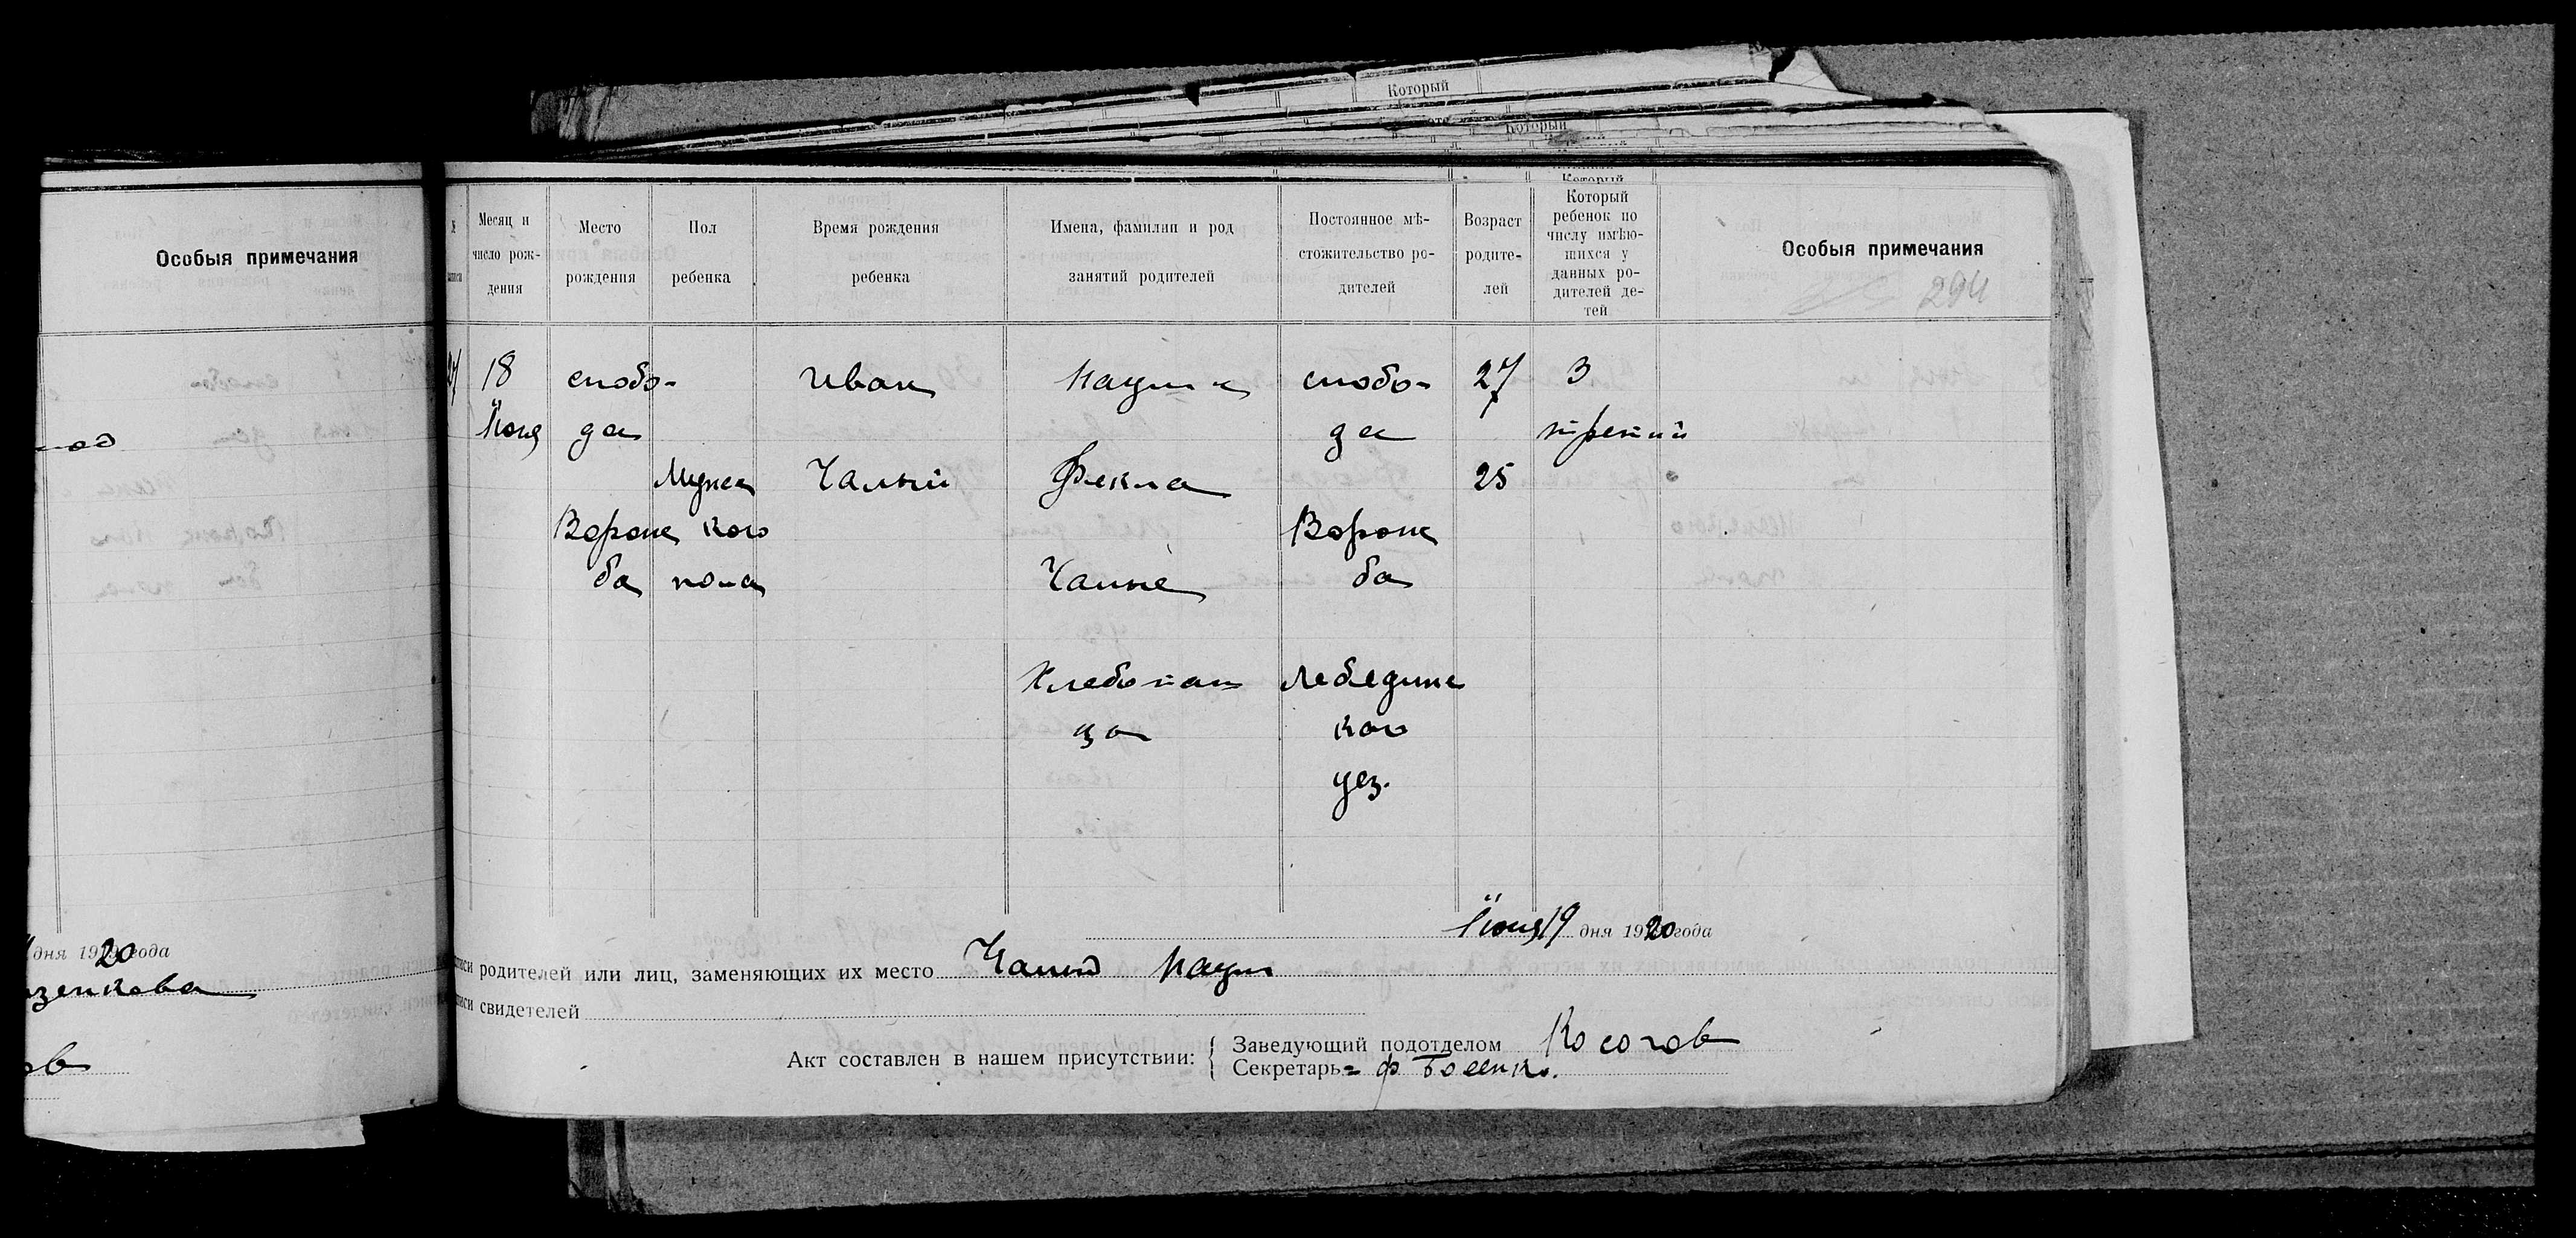 Который
Который
Особыя примечания
дня 1920 года
Месяц и число рождения
Место рождения
Пол ребенка
Время рождения ребенка
Имена, фамилии и род занятий родителей
Постоянное мѣстожительство родителей
Возраст родителей
Который ребенок по числу имѣющихся у данных родителей детей
Особыя примечания
294
18 слобо- Иван Наум слобо- 27 3
Июня да да третий
Мужс Чалый Фекла 25
Ворож кого Ворож
ба пола Чалые ба
Хлебопаш Лебединс
кого
уез.
Июня 19 дня 1920 года
родителей или лиц, заменяющих их место Чалый Наум
свидетелей
Акт составлен в нашем присутствии: { Заведующий подотделом Косогов
Секретарь